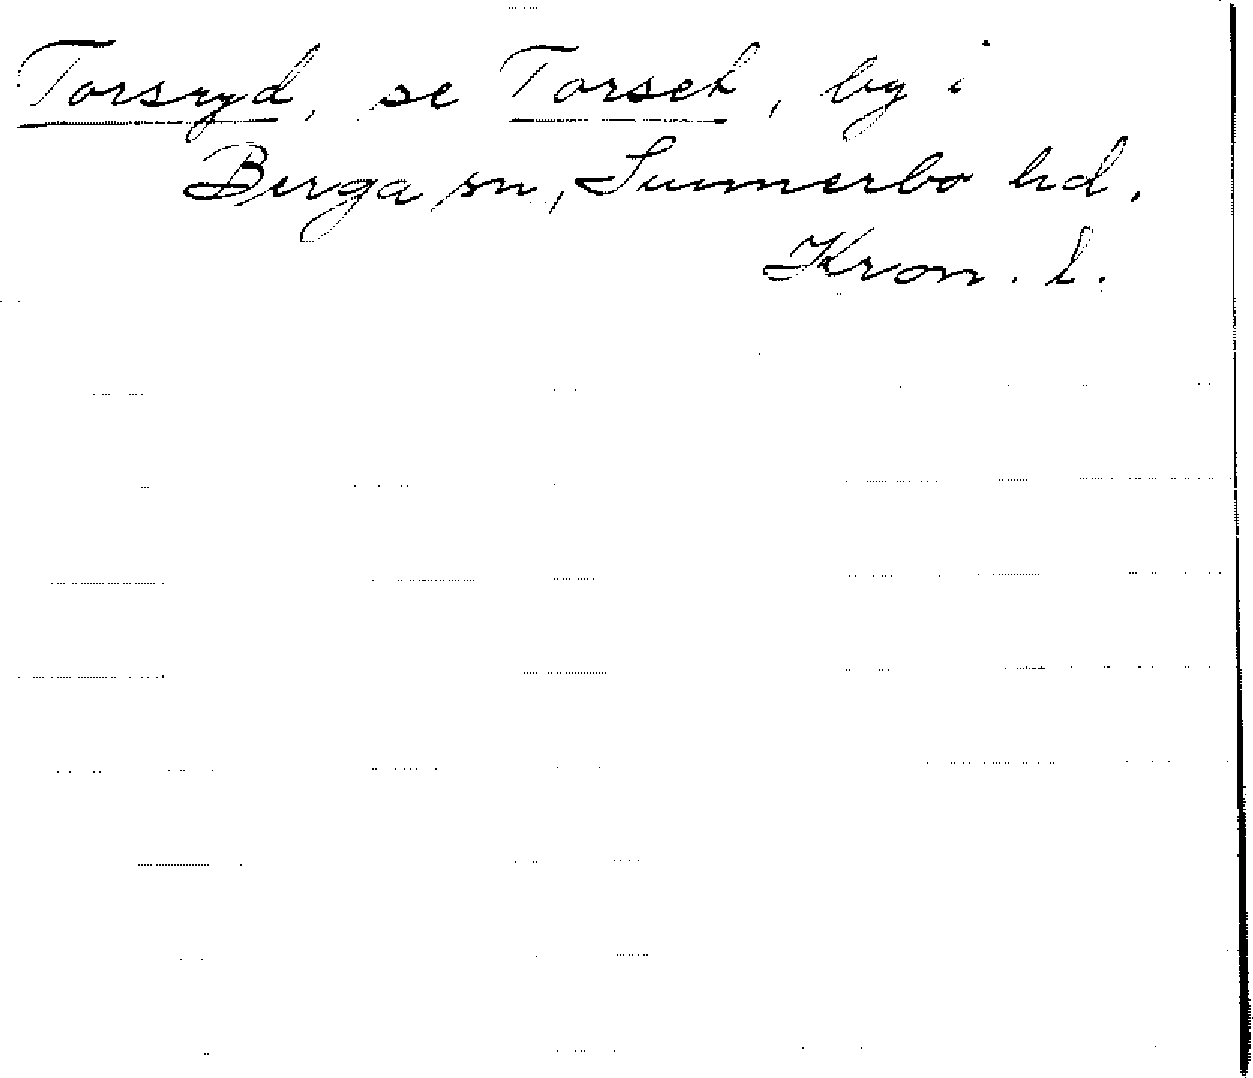 Torsryd, se Torset, by i
Berga sn, Sunnerbo hd,
Kron. l.